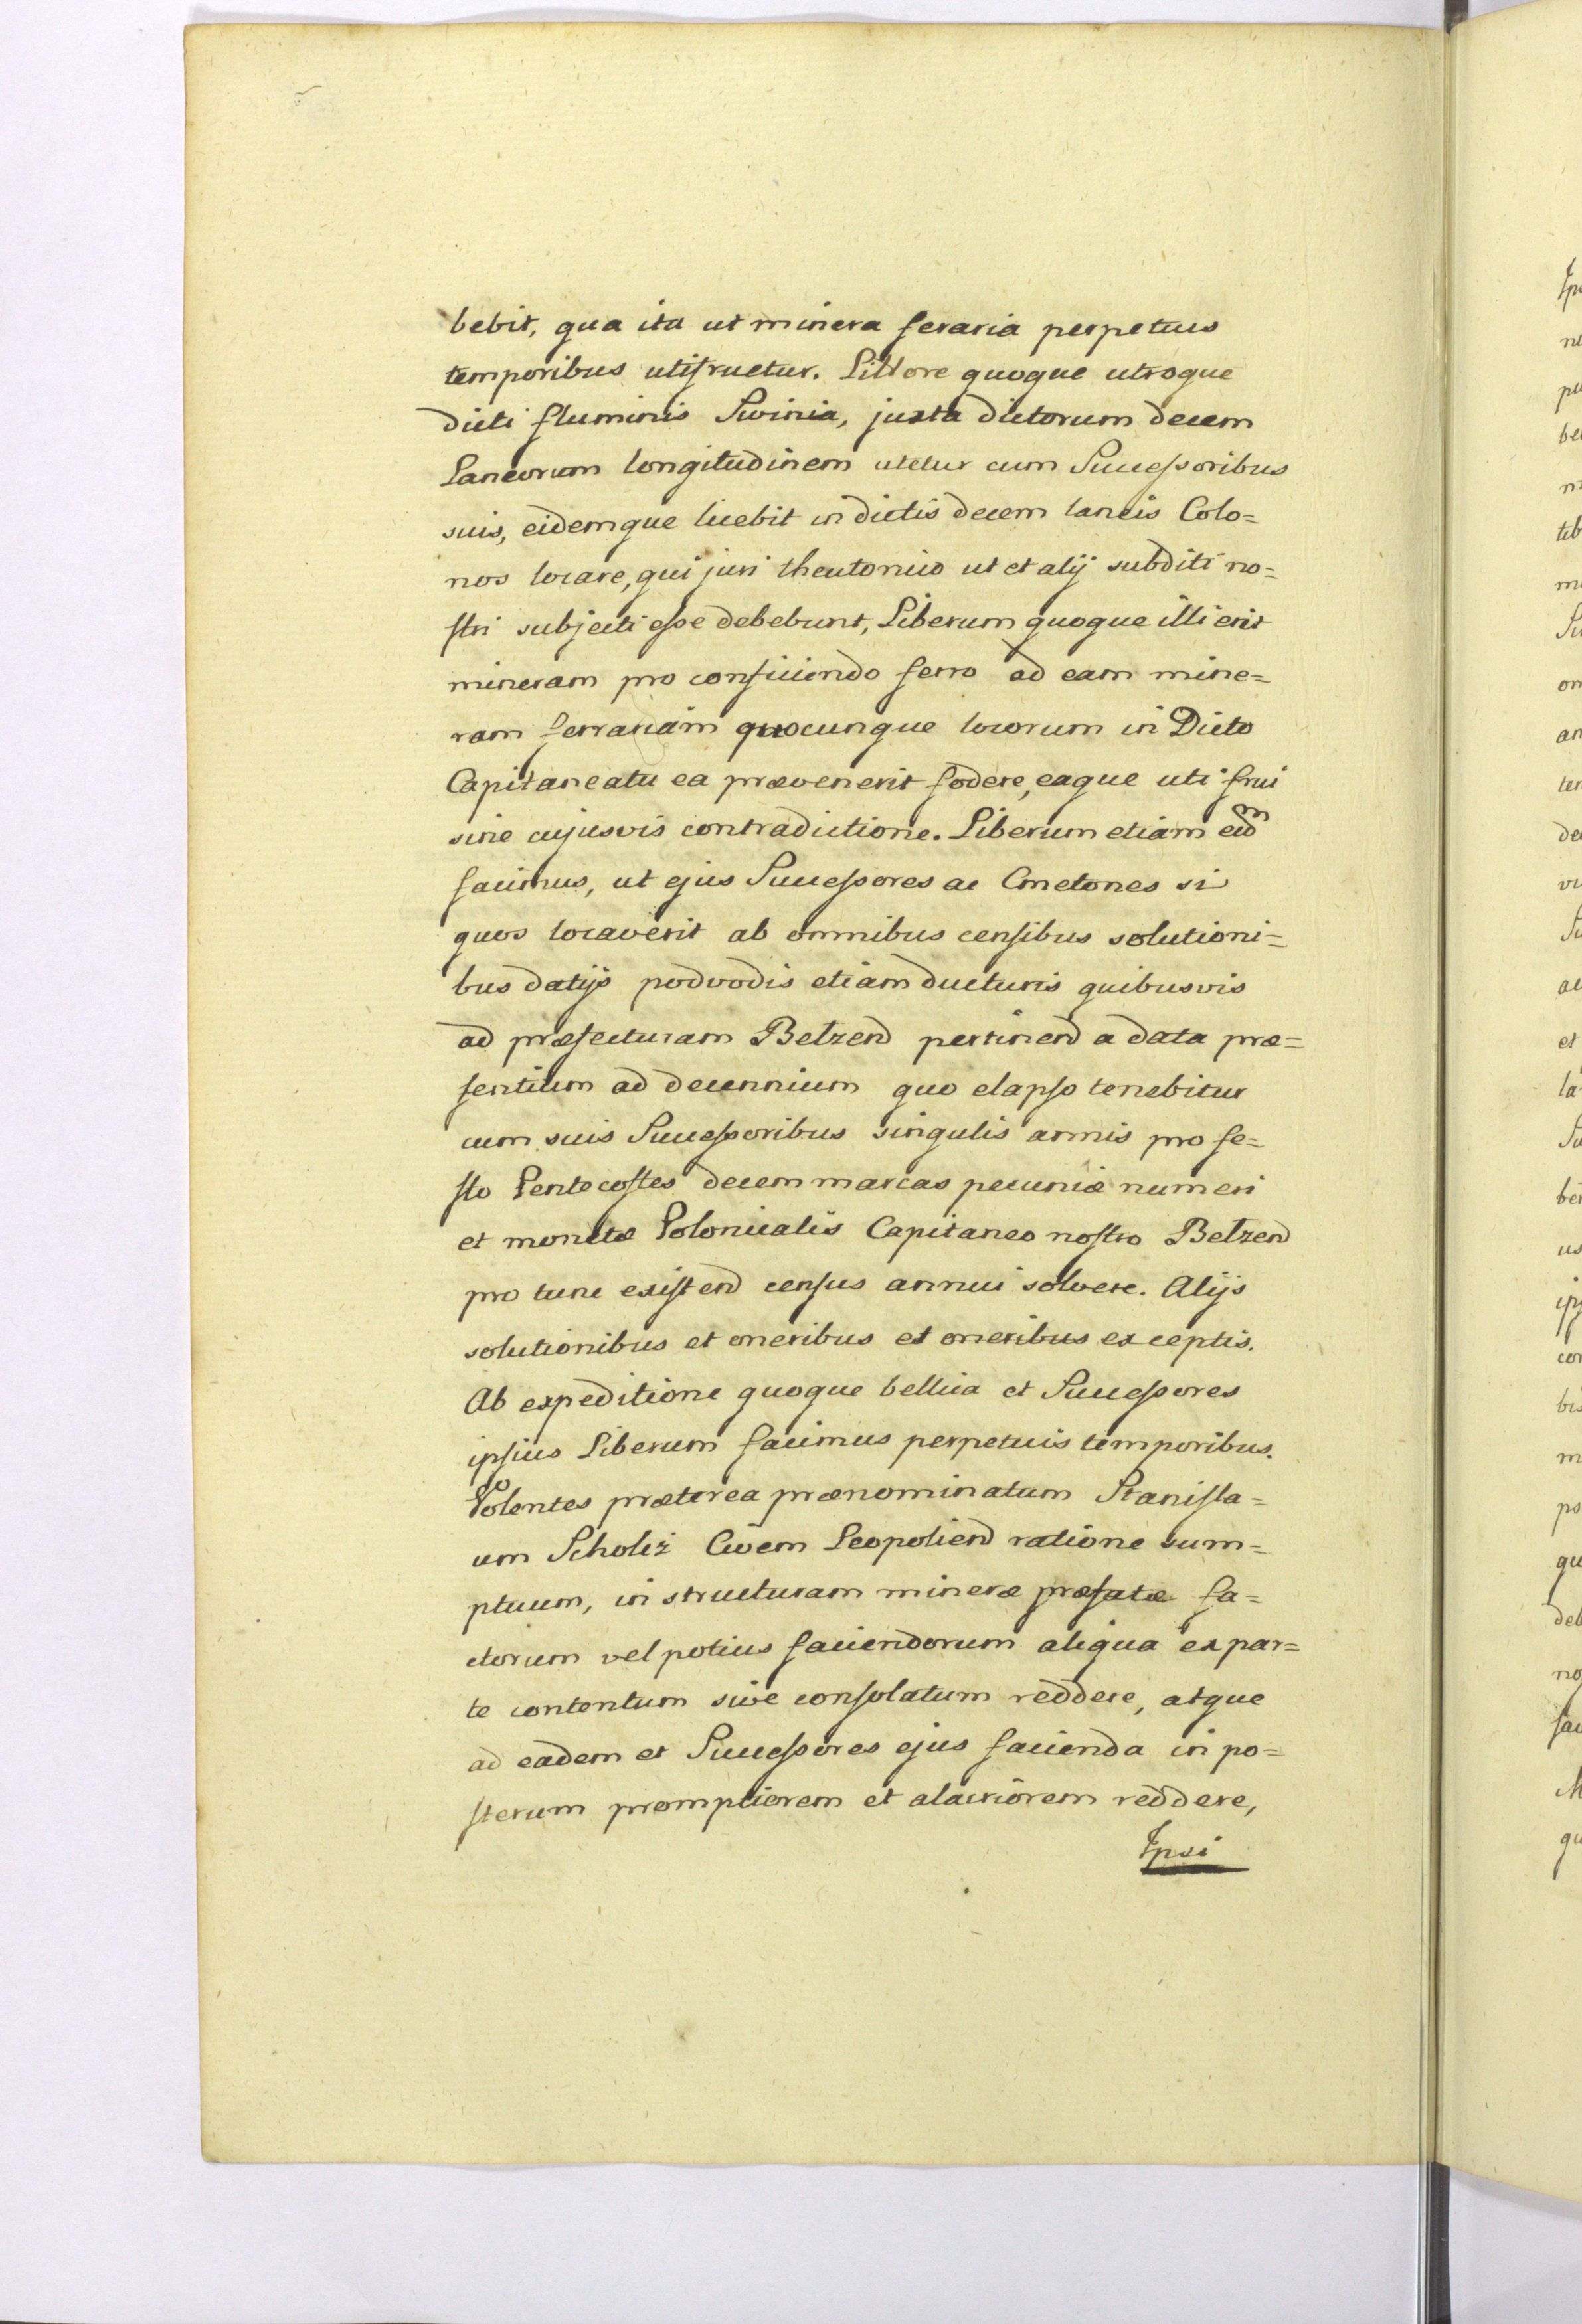 bebit, qua ita ut minera feraria perpetuis
temporibus utifruetur. Littore quoque utroque
dicti fluminis Swinia, juxta dictorum decem
Laneorum longitudinem utetur cum Successoribus
suis, eidemque licebit in dictis decem laneis Colo=
nos locare, qui juri theutonico ut et alij subditi no=
stri subjecti esse debebunt, Liberum quoque illi erit
mineram pro conficiendo ferro ad eam mine=
ram ferrariam quocunque locorum in Dicto
Capitaneatu ea praevenerit fodere, eaque uti frui
sine cujusvis contradictione. Liberum etiam eidm
facimus, ut ejus Successores ac Cmetones si
quos locaverit ab omnibus censibus solutioni=
bus datijs podvodis etiam ducturis quibusvis
ad praefecturam Betzend pertinend a data prae=
sentium ad decennium quo elapso tenebitur
cum suis Successoribus singulis annis pro fe=
sto Pentecostes decem marcas pecuniae numeri
et monetae Polonicalis Capitaneo nostro Betzend
pro tunc existend census annui solvere. Alijs
solutionibus et oneribus et oneribus exceptis.
Ab expeditione quoque bellica et Successores
ipsius Liberum facimus perpetuis temporibus.
Volentes praeterea praenominatum Stanisla=
um Scholiz Civem Leopoliend ratione sum=
ptuum, in structuram minerae praefatae fa=
ctorum vel potius faciendorum aliqua ex par=
te contentum sive consolatum reddere, atque
ad eadem et Successores ejus facienda in po=
sterum promptiorem et alacriorem reddere,
Ipsi